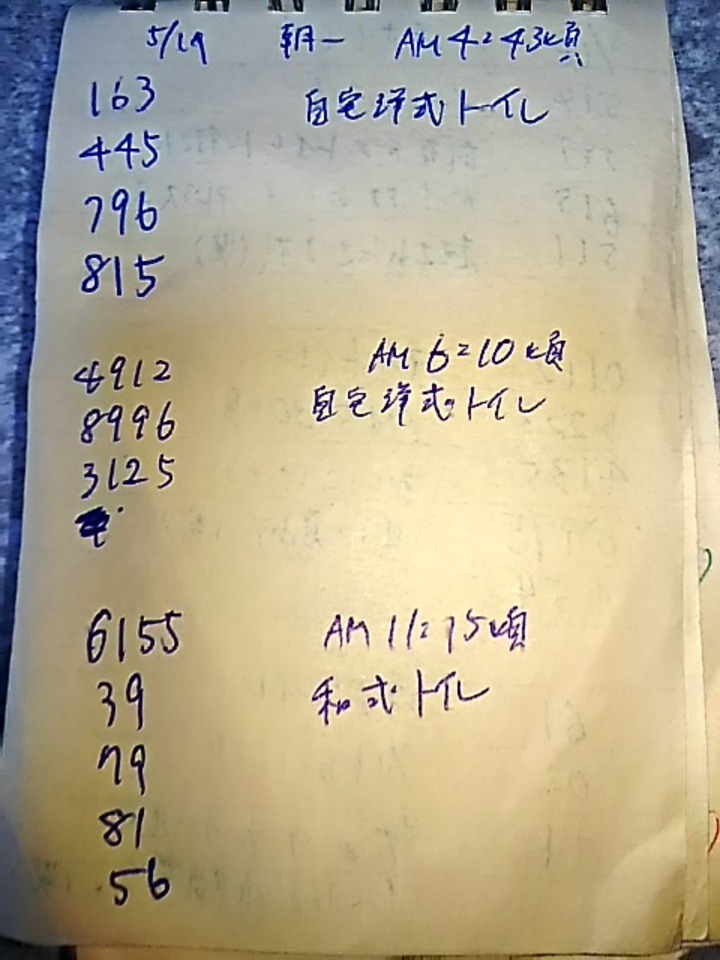 5/19 朝一 AM 4:43頃
163 自宅洋式トイレ
445
796
815
AM 6:10頃
4912
自宅洋式トイレ
8996
3125
6155 AM 11:15頃
39 和式トイレ
79
81
56